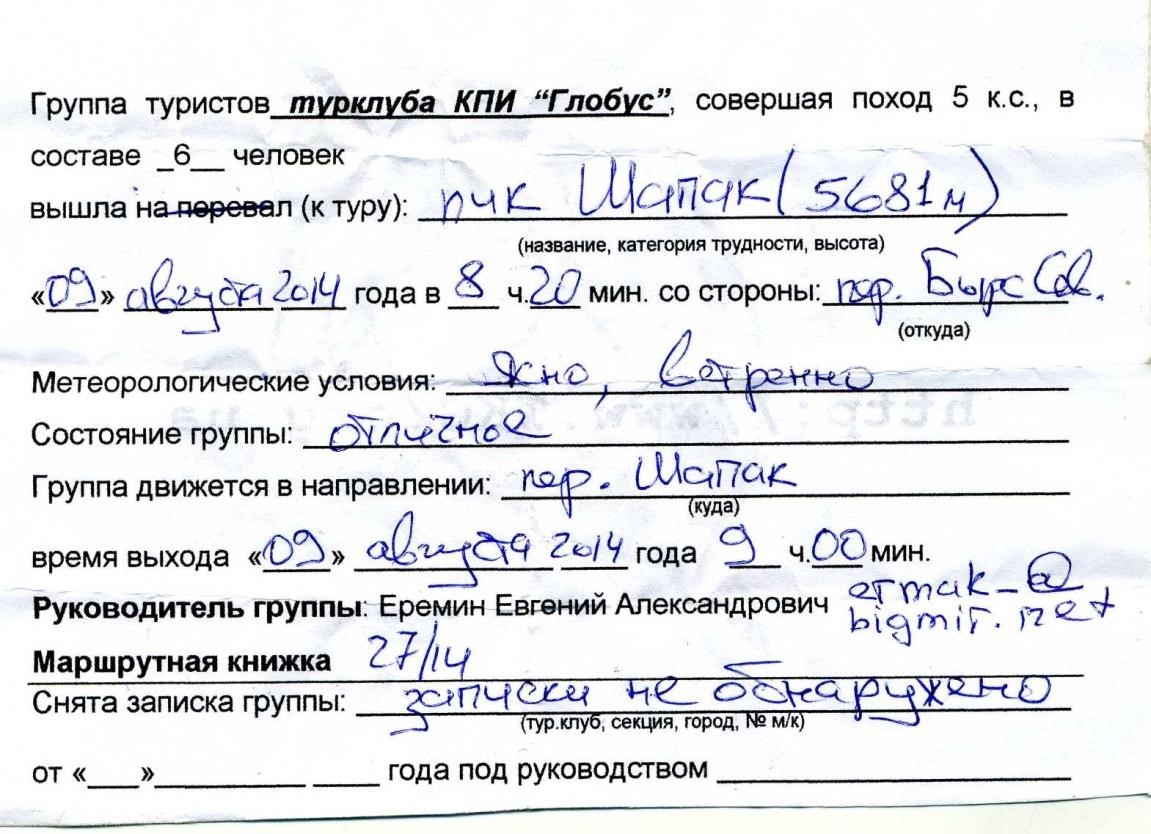 Группа туристов турклуба КПИ “Глобус”, совершая поход 5 к.с., в
составе _6__ человек
вышла на перевал (к туру): пик Шапак (5681м)
(название, категория трудности, высота)
«09» августа 2014 года в 8 ч.20 мин. со стороны: пер. Бырс Сев.
(откуда)
Метеорологические условия: Ясно, ветренно
Состояние группы: отличное
Группа движется в направлении: пер. Шапак
(куда)
время выхода «09» августа 2014 года 9 ч.00 мин.
Руководитель группы: Еремин Евгений Александрович ermak-@
bigmir.net
Маршрутная книжка 27/14
Снята записка группы: записки не обнаружено
(тур.клуб, секция, город, № м/к)
от «___»__________ ____ года под руководством